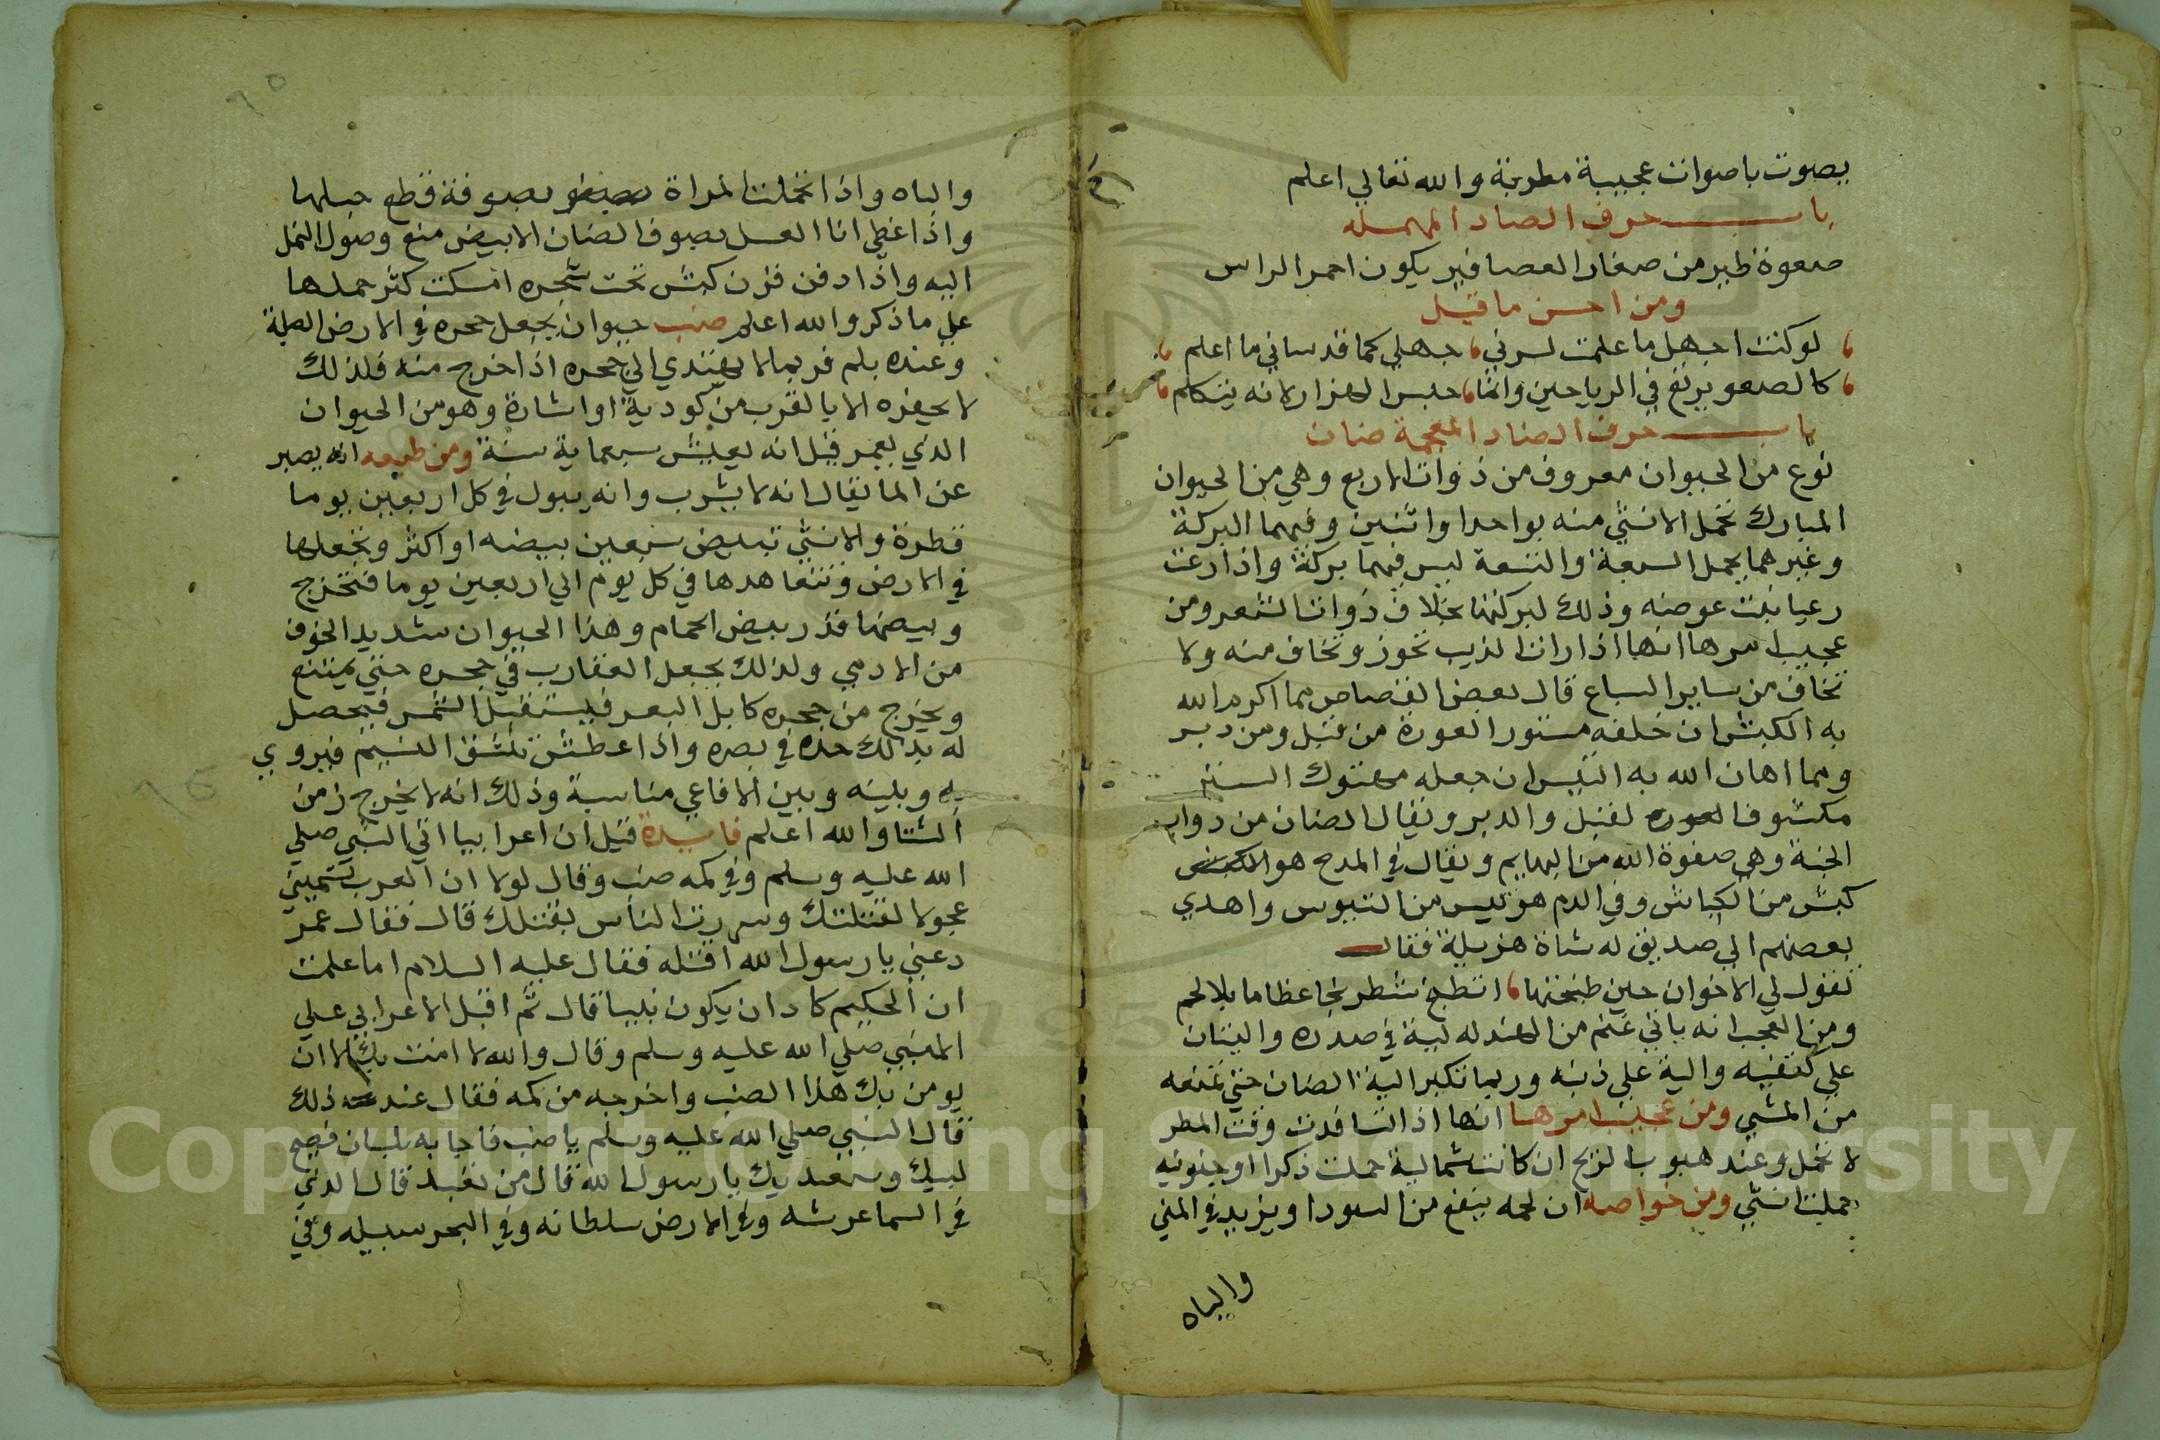 يصوت باصوات عجيبة مطربة والله تعالي اعلم
باب حرف الصاد المهمله
صعوة طير من صغار العصافير يكون احمر الراس
ومن احسن ما قيل
لو كنت اجهل ما علمت لسرني جهلي كما قد ساني ما اعلم
كالصعو يرتع في الرياحين وانما حبس الهزار لانه يتكلم
باب حرف الضاد المعجمة ضان
نوع من الحيوان معروف من ذوات الاربع وهي من الحيوان
المبارك تحمل الانثي منه بواحد او اثنين وفيهما البركة
وغيرهما يحمل السبعة والتسعة ليس فيهما بركة واذا رعت
رعيا نبت عوضه وذلك لبركتها بخلاف ذوات الشعر ومن
عجيب امرها انها اذا رات الذيب تخور وتخاف منه ولا
تخاف من ساير السباع قال بعض القصاص مما اكرم الله
به الكبش ان خلقه مستور العورة من قبل ومن دبر
ومما اهان الله به التيس ان جعله مهتوك الستر
مكشوف العوره لقبل والدبر ويقال الضان من دواب
الجنة وهي صفوة الله من البهايم ويقال في المدح هو الكبش
كبش من الكباش وفي الدم هو تيس من التيوس واهدي
بعضهم الي صديق له شاة هزيلة فقال
تقول لي الاخوان حين طبختها اتطبخ شطرنجا عظاما بلا لحم
ومن العجب انه ياتي غنم من الهند له لية في صدره واليتان
علي كتفيه والية علي ذنبه وربما تكبر الية الضان حتي تمنعه
من المشي ومن عجيب امرها انها اذا تسافدت وقت المطر
لا تحمل وعند هبوب الريح ان كانت شمالية حملت ذكرا او جنوبيه
حملت انثي ومن خواصه ان لحمه ينفع من السودا ويزيد في المني
والباه
والباه واذا تحملت المراة بصوفة قطع حبلها
واذا غطي انا العسل بصوف الضان الابيض منع وصول النمل
اليه واذا دفن قرن كبش تحت شجره كثر حملها
علي ما ذكر والله اعلم ضب حيوان يجعل جحره في الارض الصلبة
وعنده بلم فربما لا يهتدي الي جحره اذا خرج منه فلذلك
لا يحفره الا بالقرب من كودية او اشارة وهو من الحيوان
الذي يعمر قيل انه يعيش سبعماية سنة ومن طبعه انه يصبر
عن الما يقال انه لا يشرب وانه يبول في كل اربعين يوما
قطرة والانثي تبيض سبعين بيضه او اكثر وتجعلها
في الارض وتتعاهدها في كل يوم الي اربعين يوما فتخرج
وبيضها قدر بيض الحمام وهذا الحيوان شديد الخوف
من الادمي ولذلك يجعل العقارب في جحره حتي يمتنع
ويخرج من جحره كابل البصر فيستقبل الشمس فيحصل
له بذلك حده في بصره واذا عطش تنشق النسيم فيروي
به وبينه وبين الافاعي مناسبة وذلك انه لا يخرج زمن
الشتا والله اعلم فايدة قيل ان اعرابيا اتي النبي صلي
الله عليه وسلم وفي كمه ضب وقال لولا ان العرب تسميني
عجولا لقتلتك وسررت الناس بقتلك قال فقال عمر
دعني يا رسول الله اقتله فقال عليه السلام اما علمت
ان الحكيم كاد ان يكون نبيا قال ثم اقبل الاعرابي علي
النبي صلي الله عليه وسلم وقال والله لا امنت بك الا ان
يومن بك هذا الضب واخرجه من كمه فقال عند ذلك
قال النبي صلي الله عليه وسلم يا ضب فاجابه بلسان فصيح
لبيك وسعديك يا رسول الله قال من تعبد قال الذي
في السما عرشه وفي الارض سلطانه وفي البحر سبيله وفي
٩٥
Copyright © King Saud University